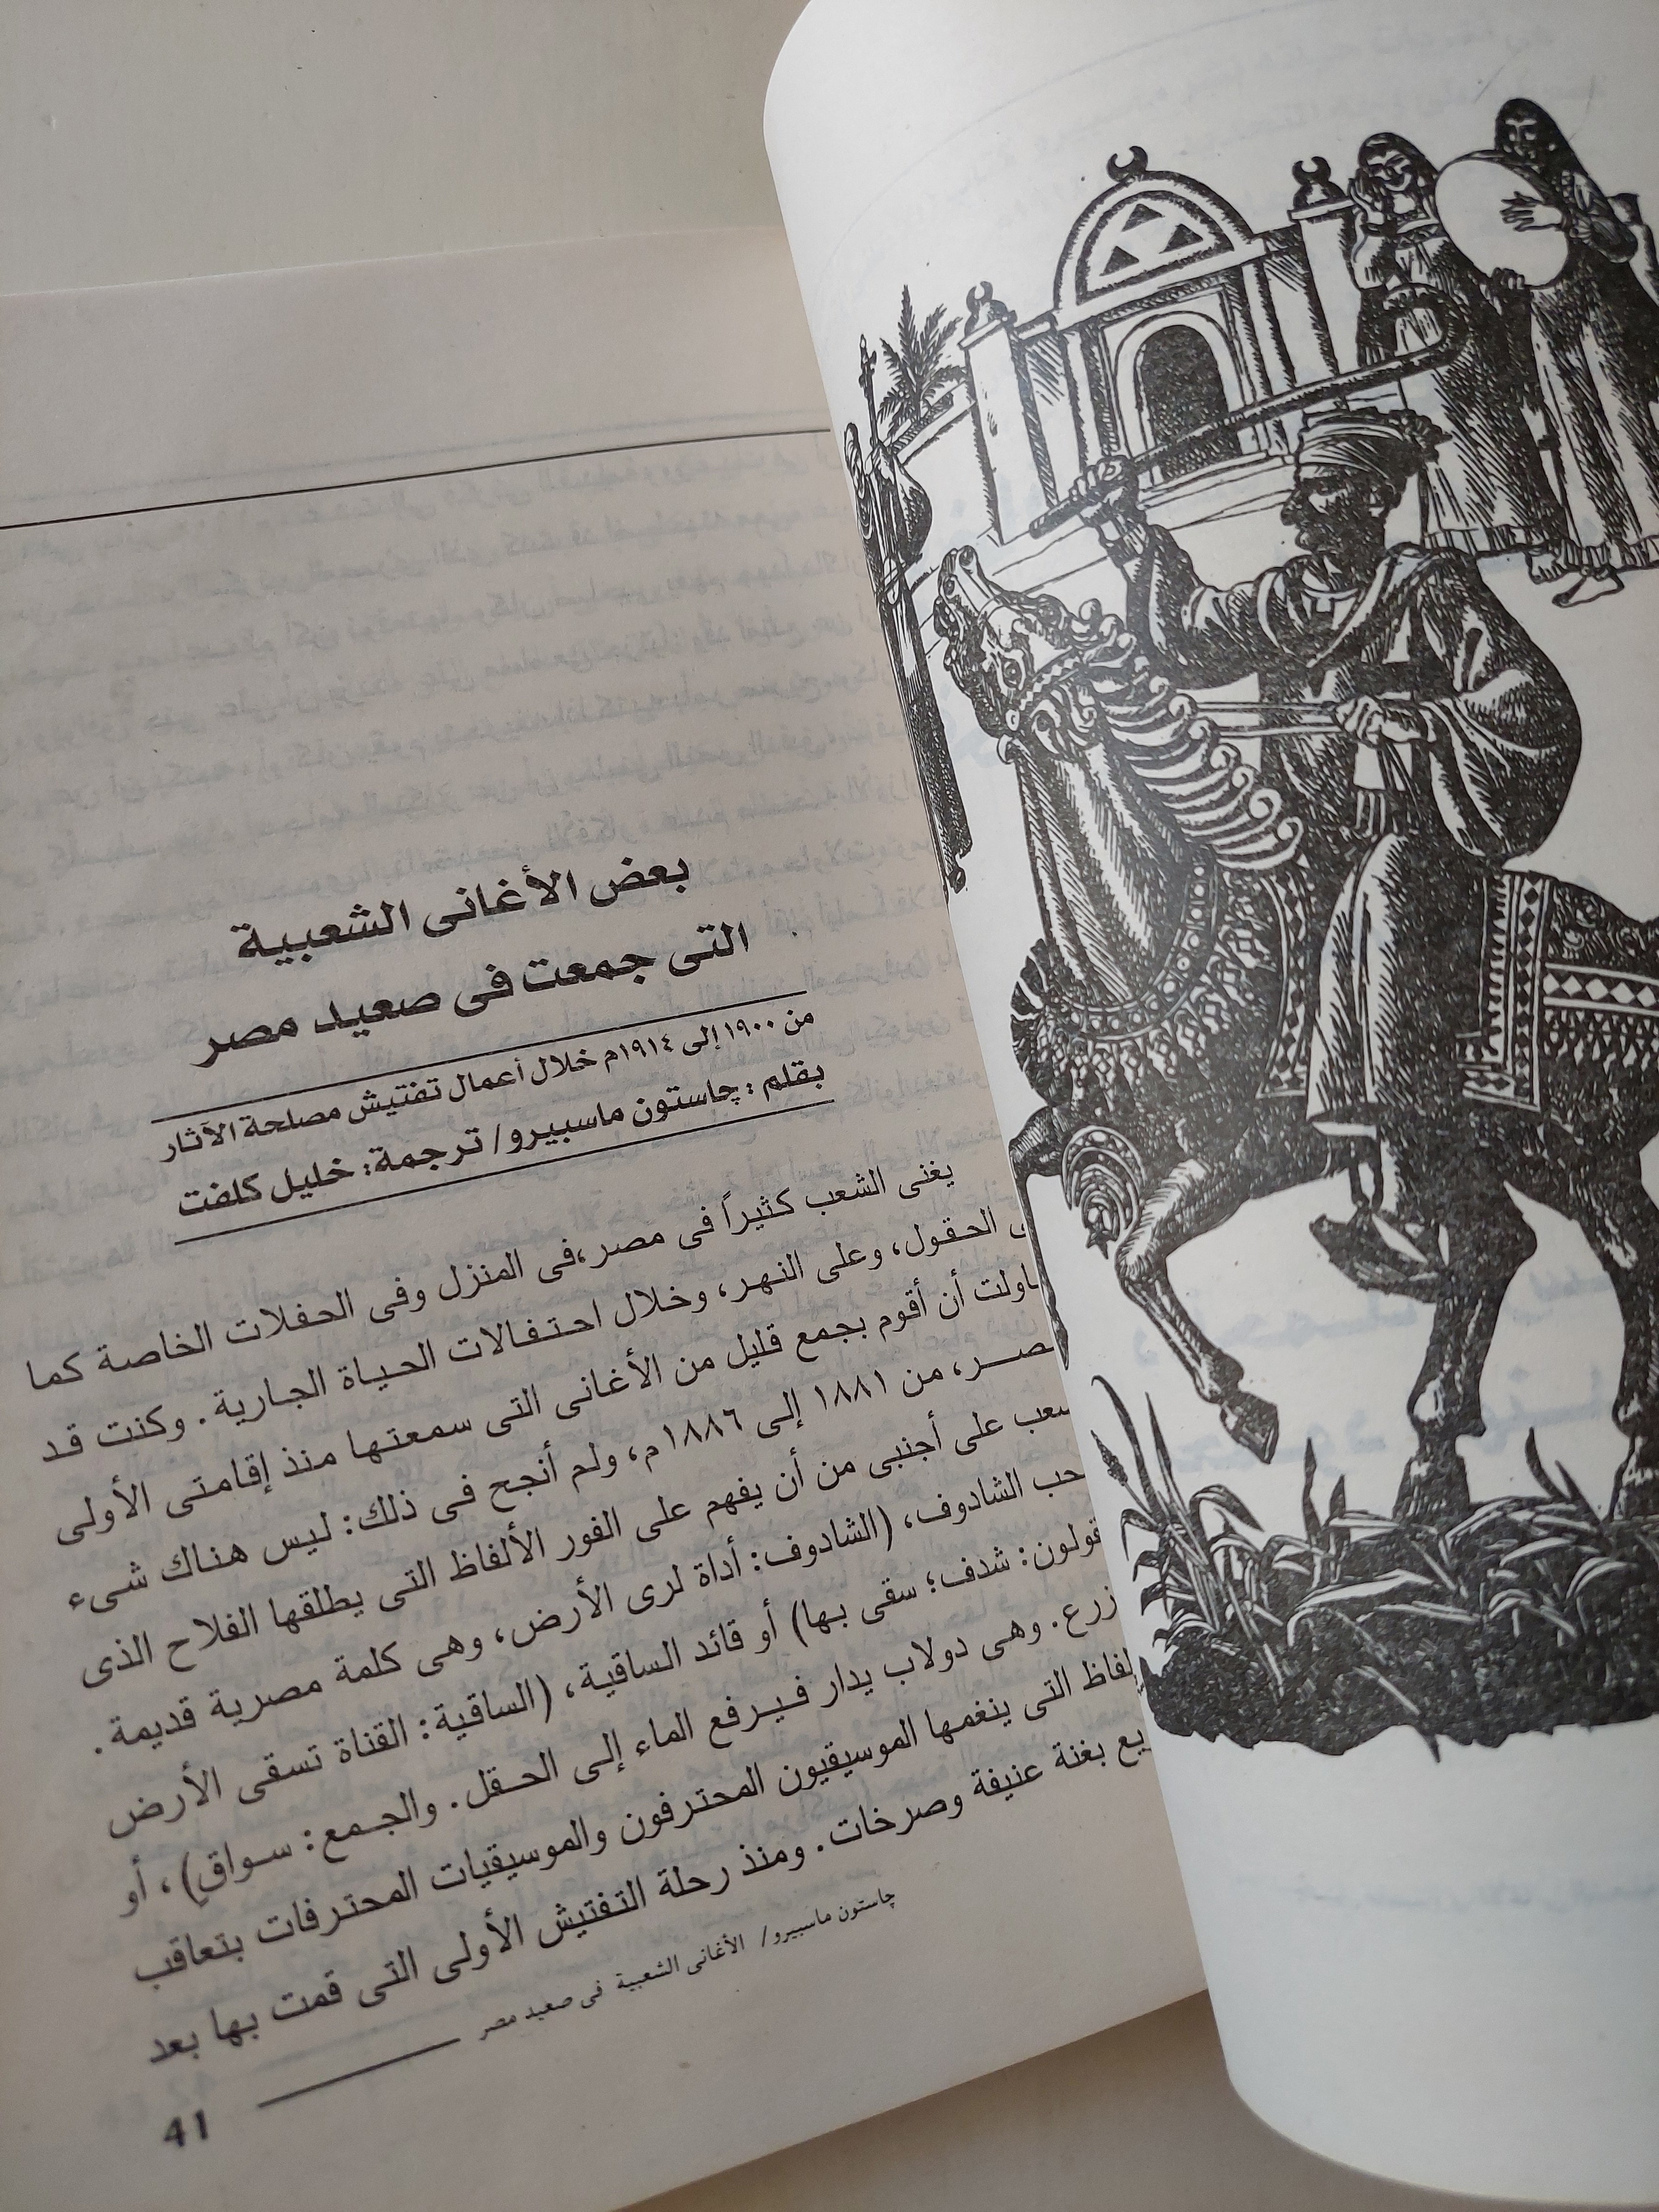 بعض الأغانى الشعبية
التى جمعت فى صعيد مصر
من ١٩٠٠ إلى ١٩١٤م خلال أعمال تفتيش مصلحة الآثار
بقلم : چاستون ماسبيرو/ ترجمة: خليل كلفت
يغنى الشعب كثيراً فى مصر،فى المنزل وفى الحفلات الخاصة كما
الحقول، وعلى النهر، وخلال احتفالات الحياة الجارية. وكنت قد
اولت أن أقوم بجمع قليل من الأغانى التى سمعتها منذ إقامتى الأولى
صر، من ١٨٨١ إلى ١٨٨٦م، ولم أنجح فى ذلك: ليس هناك شىء
عب على أجنبى من أن يفهم على الفور الألفاظ التى يطلقها الفلاح الذى
حب الشادوف، (الشادوف: أداة لرى الأرض، وهى كلمة مصرية قديمة.
قولون: شدف؛ سقى بها) أو قائد الساقية، (الساقية: القناة تسقى الأرض
زرع. وهى دولاب يدار فيرفع الماء إلى الحقل. والجمع: سواقٍ)، أو
لفاظ التى ينغمها الموسيقيون المحترفون والموسيقيات المحترفات بتعاقب
يع بغنة عنيفة وصرخات. ومنذ رحلة التفتيش الأولى التى قمت بها بعد
چاستون ماسبيرو/ الأغانى الشعبية فى صعيد مصر
41